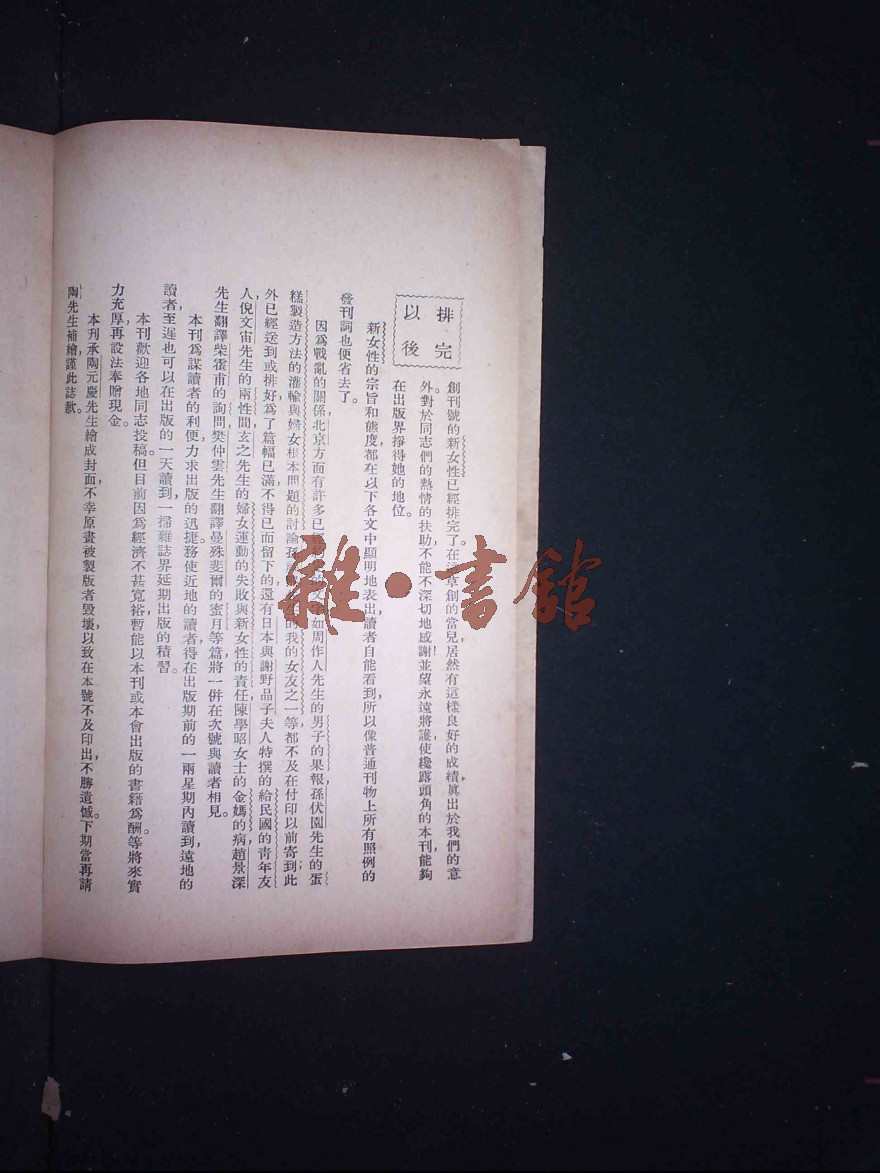 排完
以後
創刊號的新女性已經排完了在這草創的當兒居然有這樣良好的成績,眞出於我們的意
外。對於同志們的熱情的扶助,不能不深切地感謝!並望永遠將護,使纔露頭角的本刊,能夠
在出版界掙得她的地位。
新女性的宗旨和態度,都在以下各文中顯明地表出,讀者自能看到,所以像普通刊物上所有照例的
發刊詞也便省去了。
因爲戰亂的關係,北京方面有許多已經如周作人先生的男子的果報,孫伏園先生的蛋
糕製造方法的灌輸與婦女根本問題的討論,孫的我的女友之一等,都不及在付印以前寄到;此
外已經送到或排好,爲了篇幅已滿,不得已而留下的,還有日本與謝野晶子夫人特撰的給民國的靑年友
人,倪文宙先生的兩性間,玄之先生的婦女運動的失敗與新女性的責任,陳學昭女士的金媽的病,趙景深
先生翻譯柴霍甫的詢問,樊仲雲先生翻譯曼殊斐爾的蜜月等篇,將一併在次號與讀者相見。
本刊爲謀讀者的利便,力求出版的迅捷,務使近地的讀者得在出版期前的一兩星期內讀到,遠地的
讀者至遲也可以在出版的一天讀到,一掃雜誌界延期出版的積習。
本刊歡迎各地同志投稿。但目前因爲經濟不甚寬裕,暫能以本刊或本會出版的書籍爲酬。等將來實
力充厚,再設法奉贈現金。
本刊承陶元慶先生繪成封面,不幸原畫被製版者毀壞,以致在本號不及印出,不勝遺憾。下期當再請
陶先生補繪,謹此誌歉。
雜·書館